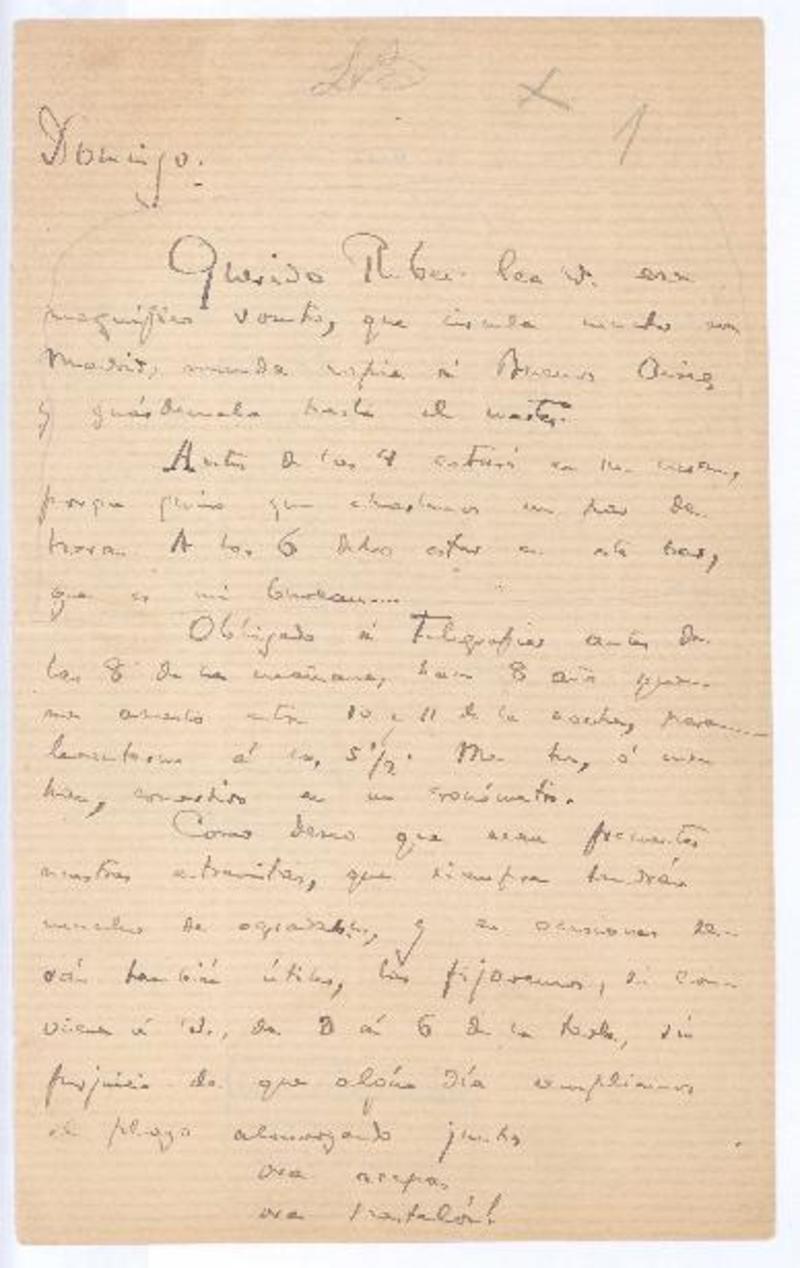 1
Domingo.
Querido Rubén: lea V. ese
magnífico, que circula mucho en
Madrid, mande copia á Buenos Aires
y guárdemela hasta el martes.
Antes de las 4 estaré en su casa,
porque quiero que charlemos un par de
horas. A las 6 debo estar en este bar,
que es mi
Obligado á Telégrafos antes de
las 8 de la mañana, hace 8 años que
me acuesto entre 10 y 11 de la noche, para
levantarme á las 5 1/2. Me he, ó me
han, convertido en un cronómetro.
Como deseo que sean frecuentes
nuestras entrevistas, que siempre tendrán
mucho de agradables, y en ocasiones se-
rán también útiles, las fijaremos, si con-
viene á V., de 3 á 6 de la tarde, sin
perjuicio de que algún día ampliemos
el plazo almorzando juntos
ora
ora